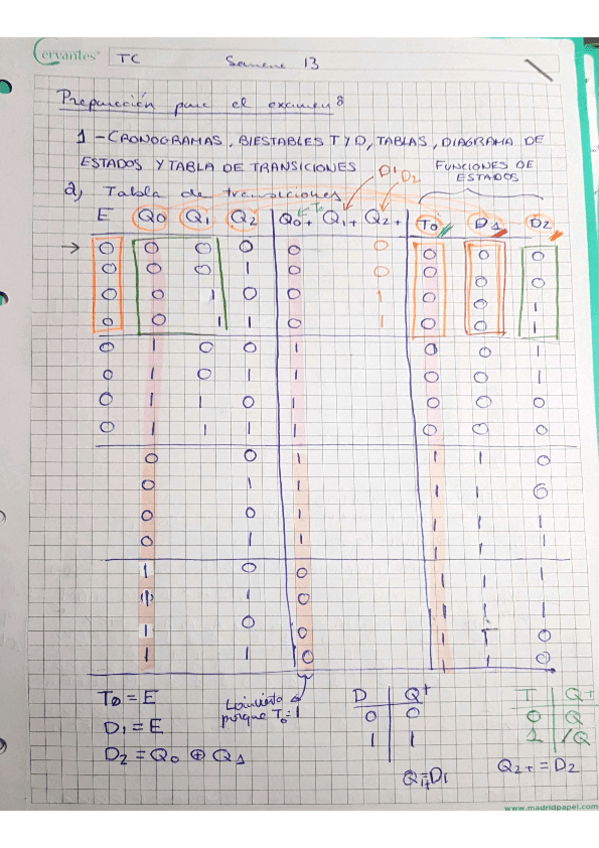 Cervantes TC Semana 13
Preparación para el examen:
1 - CRONOGRAMAS, BIESTABLES T Y D, TABLAS, DIAGRAMA DE
ESTADOS Y TABLA DE TRANSICIONES
FUNCIONES DE
ESTADOS
a) Tabla de transiciones
D1 D2
E Q0 Q1 Q2 Q0+ Q1+ Q2+ T0 D1 D2
→ 0 0 0 0 0 0 0 0 0
0 0 0 1 0 0 0 0 0
0 0 1 0 0 1 0 0 1
0 0 1 1 0 1 0 0 1
0 1 0 0 1 0 0 1
0 1 0 1 1 0 0 1
0 1 1 0 1 0 0 0
0 1 1 1 1 0 0 0
0 0 1 1 1 0
0 1 1 1 1 0
0 0 1 1 1 1
0 1 1 1 1 1
1 0 0 1 1 1
1 0 1 1 1
1 0 0 1 1 0
1 1 0 1 1 0
T0 = E
D1 = E
D2 = Q0 ⊕ Q1
porque T0=1
D Q+
0 0
1 1
Q1+=D1
T Q+
0 Q
1 /Q
Q2+ = D2
www.madridpapel.com